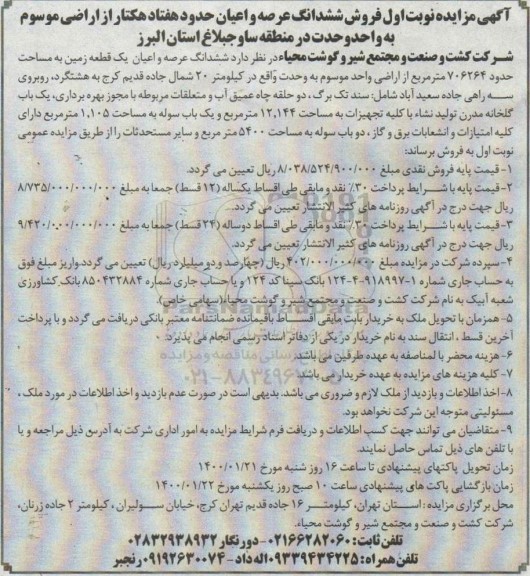 آگهی مزایده نوبت اول فروش ششدانگ عرصه و اعیان حدود هفتاد هکتار از اراضی موسوم
به واحد وحدت در منطقه ساوجبلاغ استان البرز
شرکت کشت و صنعت و مجتمع شیر و گوشت محیاء در نظر دارد ششدانگ عرصه و اعیان یک قطعه زمین به مساحت
حدود ۷۰۶۲۶۴ مترمربع از اراضی واحد موسوم به وحدت واقع در کیلومتر ۲۰ شمال جاده قدیم کرج به هشتگرد، روبروی
سه راهی جاده سعید آباد شامل: سند تک برگ، دو حلقه چاه عمیق آب و متعلقات مربوطه با مجوز بهره برداری، یک باب
گلخانه مدرن تولید نشاء با کلیه تجهیزات به مساحت ۱۲,۱۴۴ مترمربع و یک باب سوله به مساحت ۱,۱۰۵ مترمربع دارای
کلیه امتیازات و انشعابات برق و گاز، دو باب سوله به مساحت ۵۴۰۰ متر مربع و سایر مستحدثات را از طریق مزایده عمومی
نوبت اول به فروش برساند:
۱- قیمت پایه فروش نقدی مبلغ ۸/۰۳۸/۵۲۴/۹۰۰/۰۰۰ ریال تعیین می گردد.
۲- قیمت پایه با شرایط پرداخت ۳۰٪ نقد و مابقی طی اقساط یکساله (۱۲ قسط) جمعا به مبلغ ۸/۷۳۵/۰۰۰/۰۰۰/۰۰۰
ریال جهت درج در آگهی روزنامه های کثیر الانتشار تعیین می گردد.
۳- قیمت پایه با شرایط پرداخت ۳۰٪ نقد و مابقی طی اقساط دوساله (۲۴ قسط) جمعا به مبلغ ۹/۴۲۰/۰۰۰/۰۰۰/۰۰۰
ریال جهت درج در آگهی روزنامه های کثیر الانتشار تعیین می گردد.
۴- سپرده شرکت در مزایده مبلغ ۴۰۲/۰۰۰/۰۰۰/۰۰۰ ریال (چهارصد و دو میلیارد ریال) تعیین می گردد. واریز مبلغ فوق
به حساب جاری شماره ۱-۹۱۸۹۹۷-۴-۱۲۴ بانک سینا کد ۱۲۴ و یا حساب جاری شماره ۸۵۰۴۳۲۸۸۴ بانک کشاورزی
شعبه آبیک به نام شرکت کشت و صنعت و مجتمع شیر و گوشت محیاء (سهامی خاص).
۵- همزمان با تحویل ملک به خریدار بابت مابقی اقساط باقیمانده ضمانتنامه معتبر بانکی دریافت می گردد و با پرداخت
آخرین قسط، انتقال سند به نام خریدار در یکی از دفاتر اسناد رسمی انجام می پذیرد.
۶- هزینه محضر با لمناصفه به عهده طرفین می باشد.
۷- کلیه هزینه های مزایده به عهده خریدار می باشد.
۸- اخذ اطلاعات و بازدید از ملک لازم و ضروری می باشد. بدیهی است در صورت عدم بازدید و اخذ اطلاعات در مورد ملک،
مسئولیتی متوجه این شرکت نخواهد بود.
۹- متقاضیان می توانند جهت کسب اطلاعات و دریافت فرم شرایط مزایده به امور اداری شرکت به آدرس ذیل مراجعه و یا
با تلفن های ذیل تماس حاصل نمایند.
زمان تحویل پاکتهای پیشنهادی تا ساعت ۱۶ روز شنبه مورخ ۱۴۰۰/۰۱/۲۱
زمان بازگشایی پاکت های پیشنهادی ساعت ۱۰ صبح روز یکشنبه مورخ ۱۴۰۰/۰۱/۲۲
محل برگزاری مزایده: استان تهران، کیلومتر ۱۶ جاده قدیم تهران کرج، خیابان سولیران، کیلومتر ۲ جاده زرنان،
شرکت کشت و صنعت و مجتمع شیر و گوشت محیاء.
تلفن ثابت: ۰۲۱۶۶۲۸۲۰۶۰ - دورنگار ۰۲۸۳۲۹۳۸۹۳۲
تلفن همراه: ۰۹۳۳۹۴۳۴۲۲۵ اله داد - ۰۹۱۹۲۶۳۰۰۷۴ رنجبر